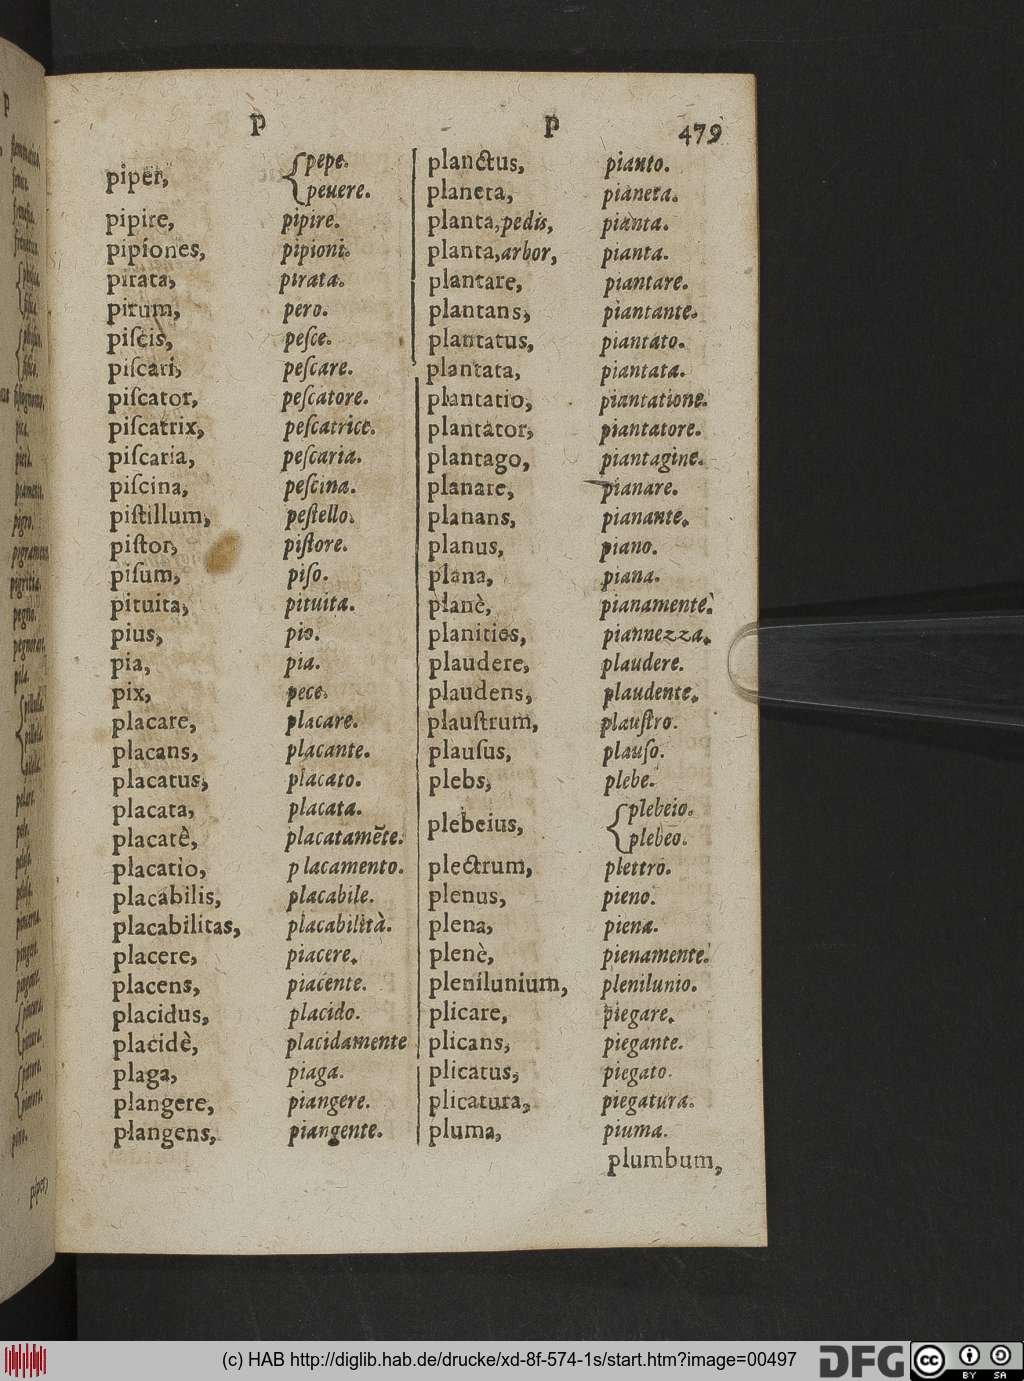 P P 479
piper, { pepe.
peuere.
pipire, pipire.
pipiones, pipioni.
pirata, pirata.
pirum, pero.
piſcis, peſce.
piſcari, peſcare.
piſcator, peſcatore.
piſcatrix, peſcatrice.
piſcaria, peſcaria.
piſcina, peſcina.
piſtillum, peſtello.
piſtor, piſtore.
piſum, piſo.
pituita, pituita.
pius, pio.
pia, pia.
pix, pece.
placare, placare.
placans, placante.
placatus, placato.
placata, placata.
placatè, placatamẽte.
placatio, placamento.
placabilis, placabile.
placabilitas, placabilità.
placere, piacere.
placens, piacente.
placidus, placido.
placidè, placidamente
plaga, piaga.
plangere, piangere.
plangens, piangente.
planctus, pianto.
planeta, pianeta.
planta, pedis, pianta.
planta, arbor, pianta.
plantare, piantare.
plantans, piantante.
plantatus, piantato.
plantata, piantata.
plantatio, piantatione.
plantator, piantatore.
plantago, piantagine.
planare, pianare.
planans, pianante.
planus, piano.
plana, piana.
planè, pianamente.
planities, piannezza.
plaudere, plaudere.
plaudens, plaudente.
plauſtrum, plauſtro.
plauſus, plauſo.
plebs, plebe.
plebeius, { plebeio.
plebeo.
plectrum, plettro.
plenus, pieno.
plena, piena.
plenè, pienamente.
plenilunium, plenilunio.
plicare, piegare.
plicans, piegante.
plicatus, piegato.
plicatura, piegatura.
pluma, piuma.
plumbum,
(c) HAB http://diglib.hab.de/drucke/xd-8f-574-1s/start.htm?image=00497
DFG
cc BY SA